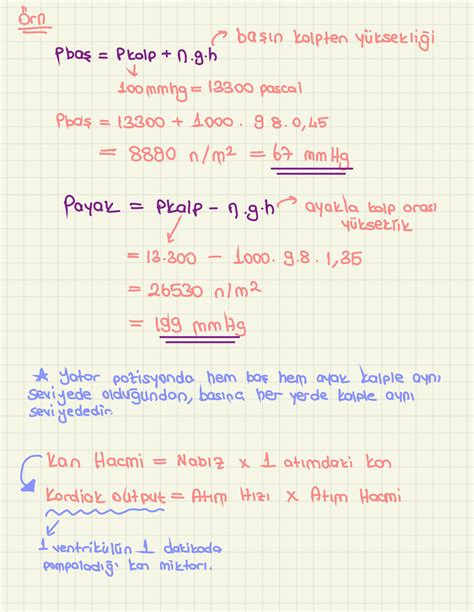 Örn
Pbaş = Pkalp + η.g.h → başın kalpten yüksekliği
100 mmhg = 13300 pascal
Pbaş = 13300 + 1000 . 9 8 . 0,45
= 8880 n/m² = 67 mmHg
Payak = Pkalp - η.g.h → ayakla kalp arası
yükseklik
= 13.300 - 1000. 9.8 . 1,35
= 26530 n/m²
= 199 mmHg
★ Yatar pozisyonda hem baş hem ayak kalple aynı
seviyede olduğundan, basınç her yerde kalple aynı
seviyededir.
Kan Hacmi = Nabız x 1 atımdaki kan
Kardiak output = Atım Hızı x Atım Hacmi
1 ventrikülün 1 dakikada
pompaladığı kan miktarı.